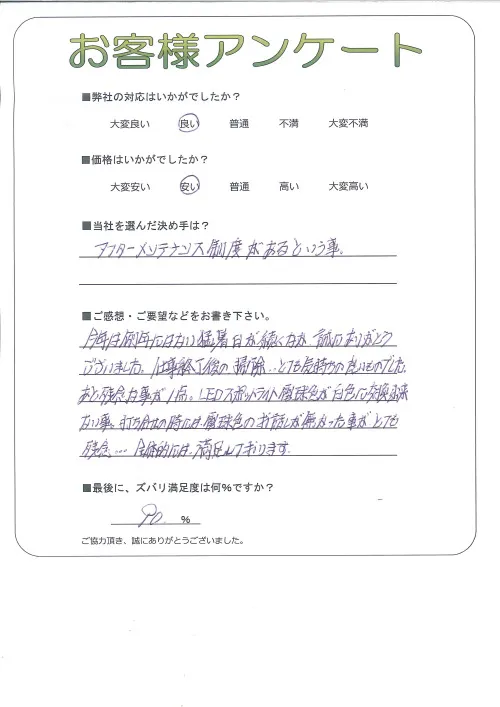 お客様アンケート
■弊社の対応はいかがでしたか？
大変良い 良い 普通 不満 大変不満
■価格はいかがでしたか？
大変安い 安い 普通 高い 大変高い
■当社を選んだ決め手は？
アフターメンテナンス制度があるという事。
■ご感想・ご要望などをお書き下さい。
今年は例年にはない猛暑日が続くなか、誠にありがとう
ございました。仕事終了後の掃除..とても気持ちの良いものでした。
あと残念な事が1点。LEDスポットライト電球色が白色に交換出来
ない事。打ち合せの時には電球色のお話しが無かった事がとても
残念… 全体的には満足しております。
■最後に、ズバリ満足度は何%ですか？
90 %
ご協力頂き、誠にありがとうございました。